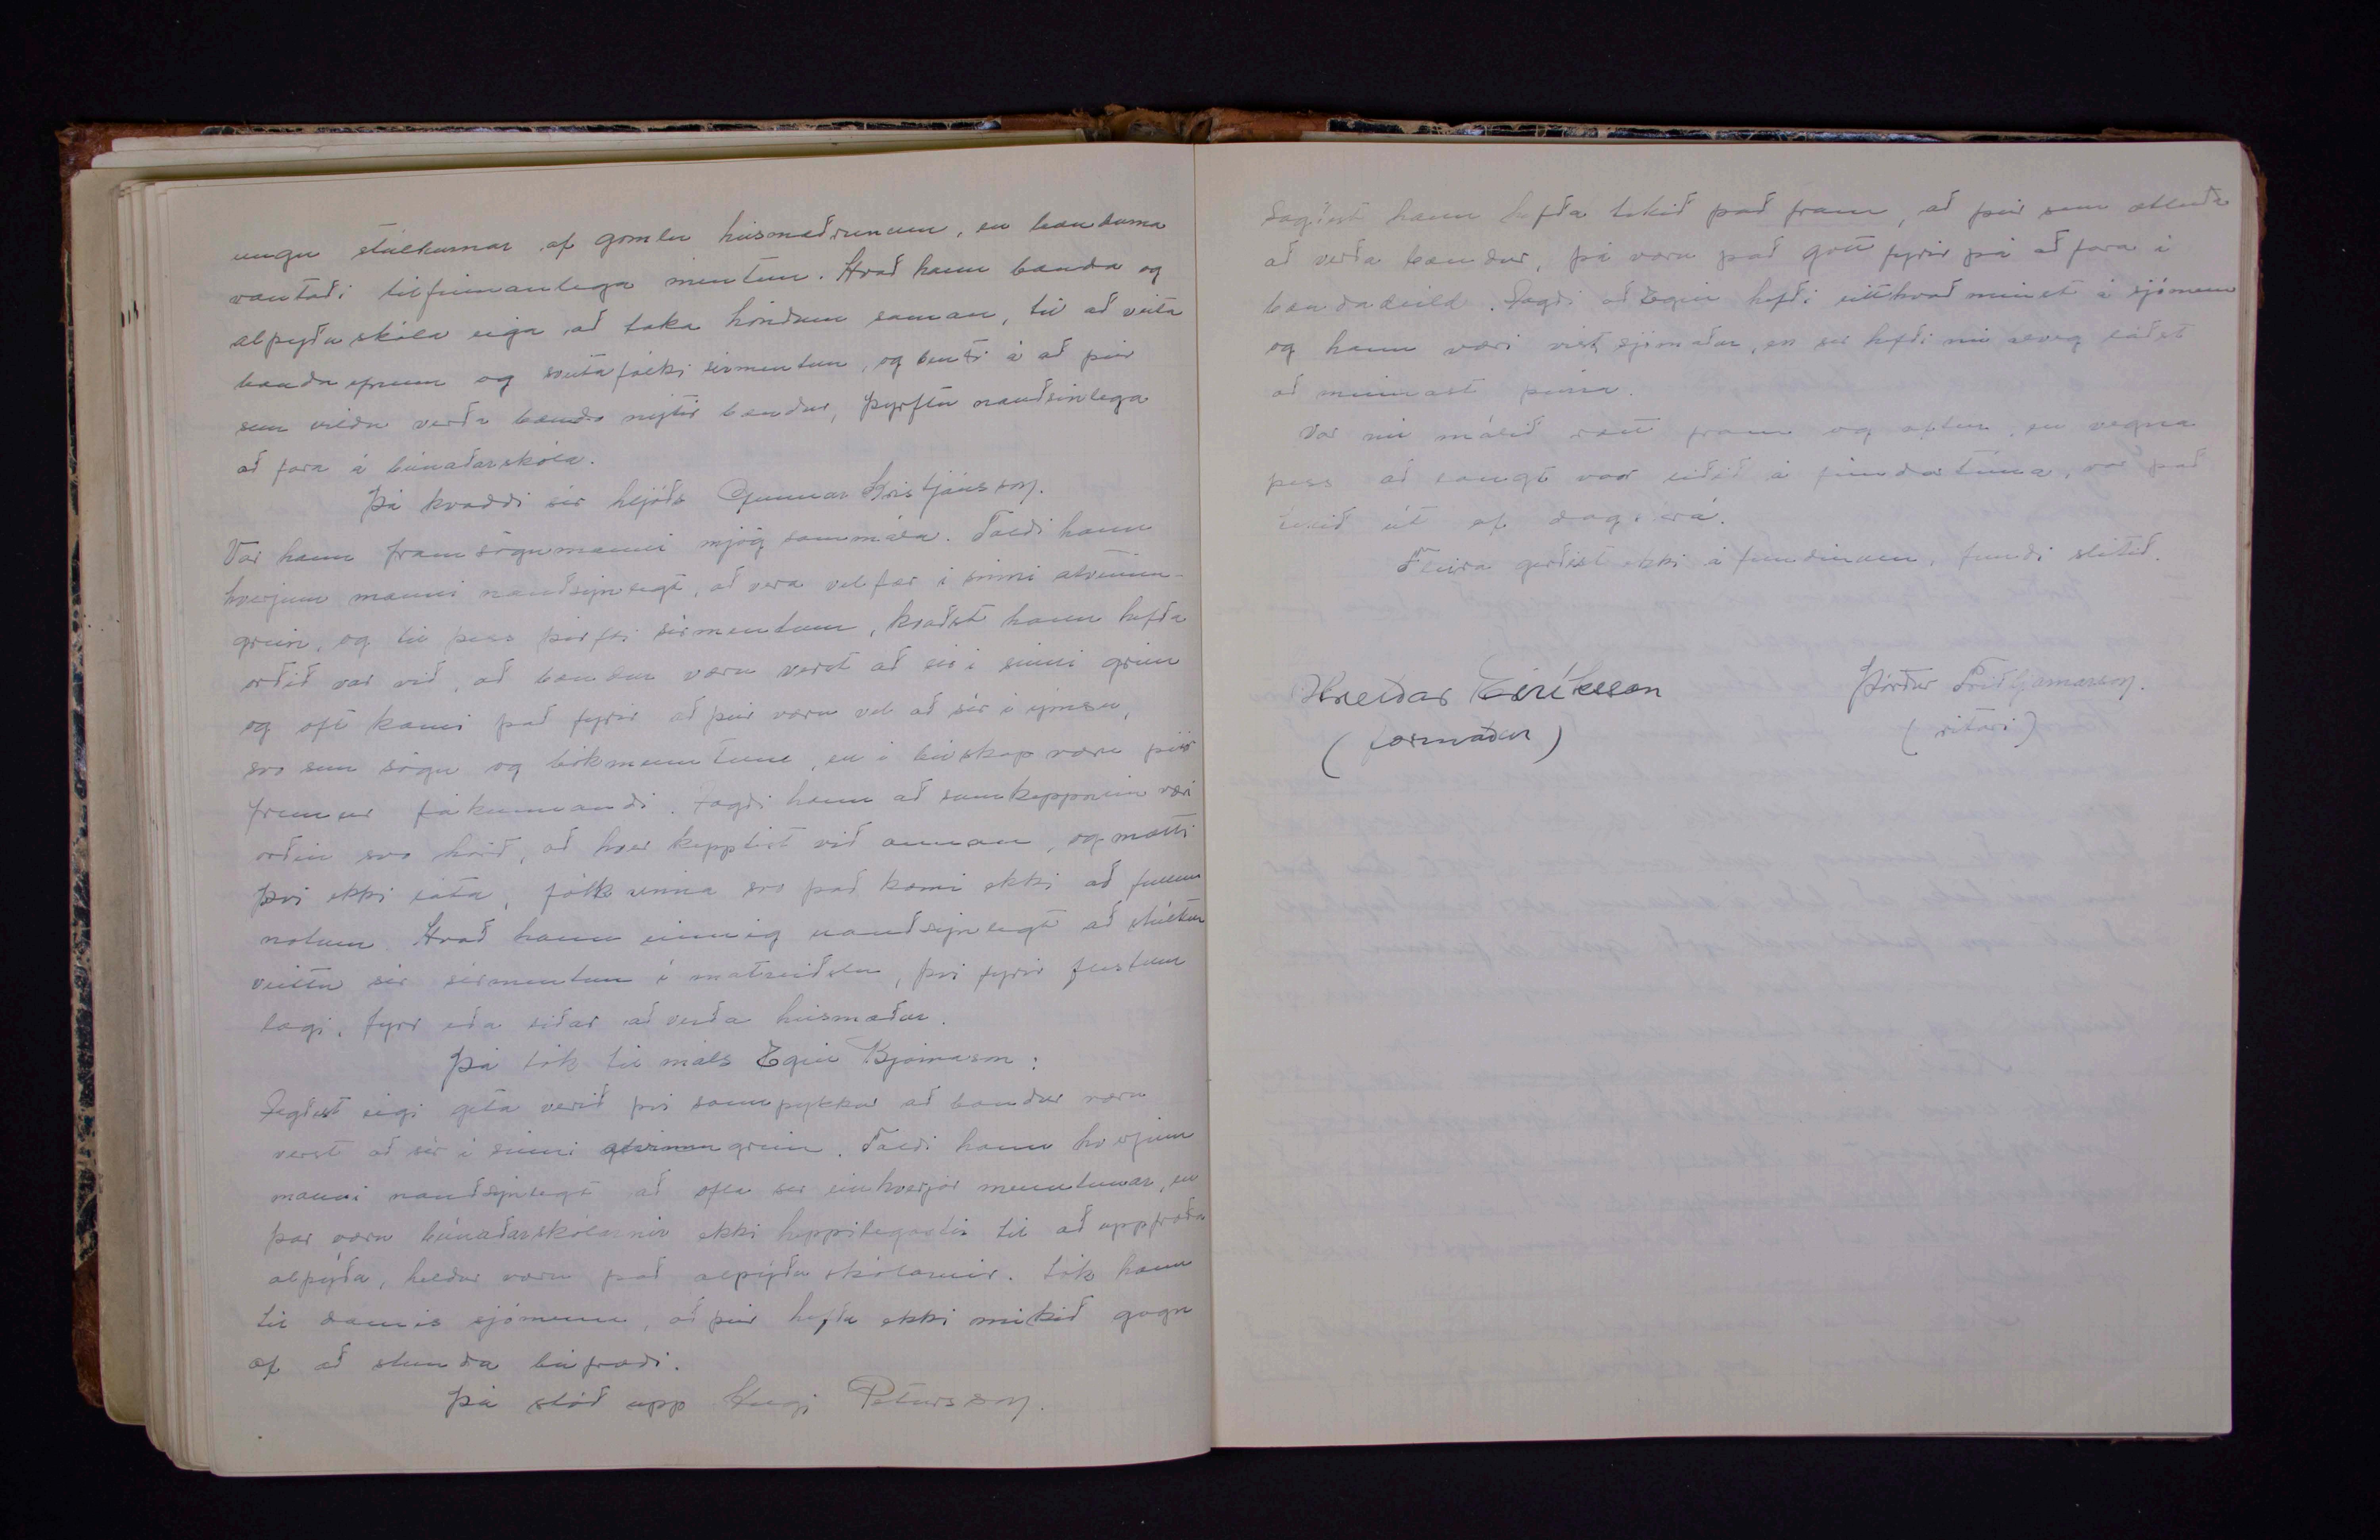 ungu stúlkurnar af gömlu húsmæðrunum, en bændurna
vantaði tilfinnanlega mentun. Kvað hann bænda og
alþyðuskóla eiga að taka höndum saman, til að veita
bændaefnum og sveitafólki sérmentun, og benti á að þeir
sem vildu verða bænda nýtir bændur, þyrftu nauðsinlega
að fara á búnaðarskóla.
Þá kvaddi sér hljóðs Gunnar Kristjánsson.
Var hann framsögumanni mjög sammála. Taldi hann
hverjum manni nauðsynlegt, að vera vel fær í sinni atvinnu-
grein, og til þess þyrfti sérmentun, kvaðst hann hafða
orðið var við, að bændur væru verst að sér í sinni grein
og oft kæmi það fyrir að þeir væru vel að sér í ýmsu,
svo sem sögu og bókmenntum, en í búskap væru þeir
fremur fákunnandi. Sagði hann að samkeppnin væri
orðin svo hörð, að hver kepptist við annan, og mætti
því ekki láta, fólk vinna svo það kæmi ekki að fullum
notum. Kvað hann einnig nauðsynlegt að stúlkur
veittu sér sérmentun í matreiðslu, því fyrir flestum
lægi, fyrr eða síðar að verða húsmæður.
Þá tók til máls Egill Bjarnason:
Sagðist eigi geta verið því samþykkur að bændur væru
verst að sér í sinni atvinnugrein. Taldi hann hverjum
manni nauðsynlegt að afla sér einhverjar menntunar, en
þar væru búnaðarskólarnir ekki heppilegastir til að uppfræða
alþýða, heldur væru það alþýðu skólarnir. Tók hann
til dæmis sjómenn, að þeir hefðu ekki mikið gagn
af að stunda búfræði.
Þá stóð upp Helgi Pétursson.
Sagðist hann hafða tekið það fram, að þeir sem ætluðu
að verða bændur, þá væru það gott fyrir þá að fara í
bændadeild. Sagði að Egill hefði eitthvað minst á sjómenn
og hann væri vist sjómaður, en sér hefði nú alveg láðst
að minnast þeirra.
Var nú málið rætt fram og aftur, en vegna
þess að langt var liðið á fundartíma, var það
tekið út af dagskrá.
Fleira gerðist ekki á fundinum, fundi slitið.
Hreiðar Eiríksson Þórður Friðbjarnarson.
(formaður) (ritari)